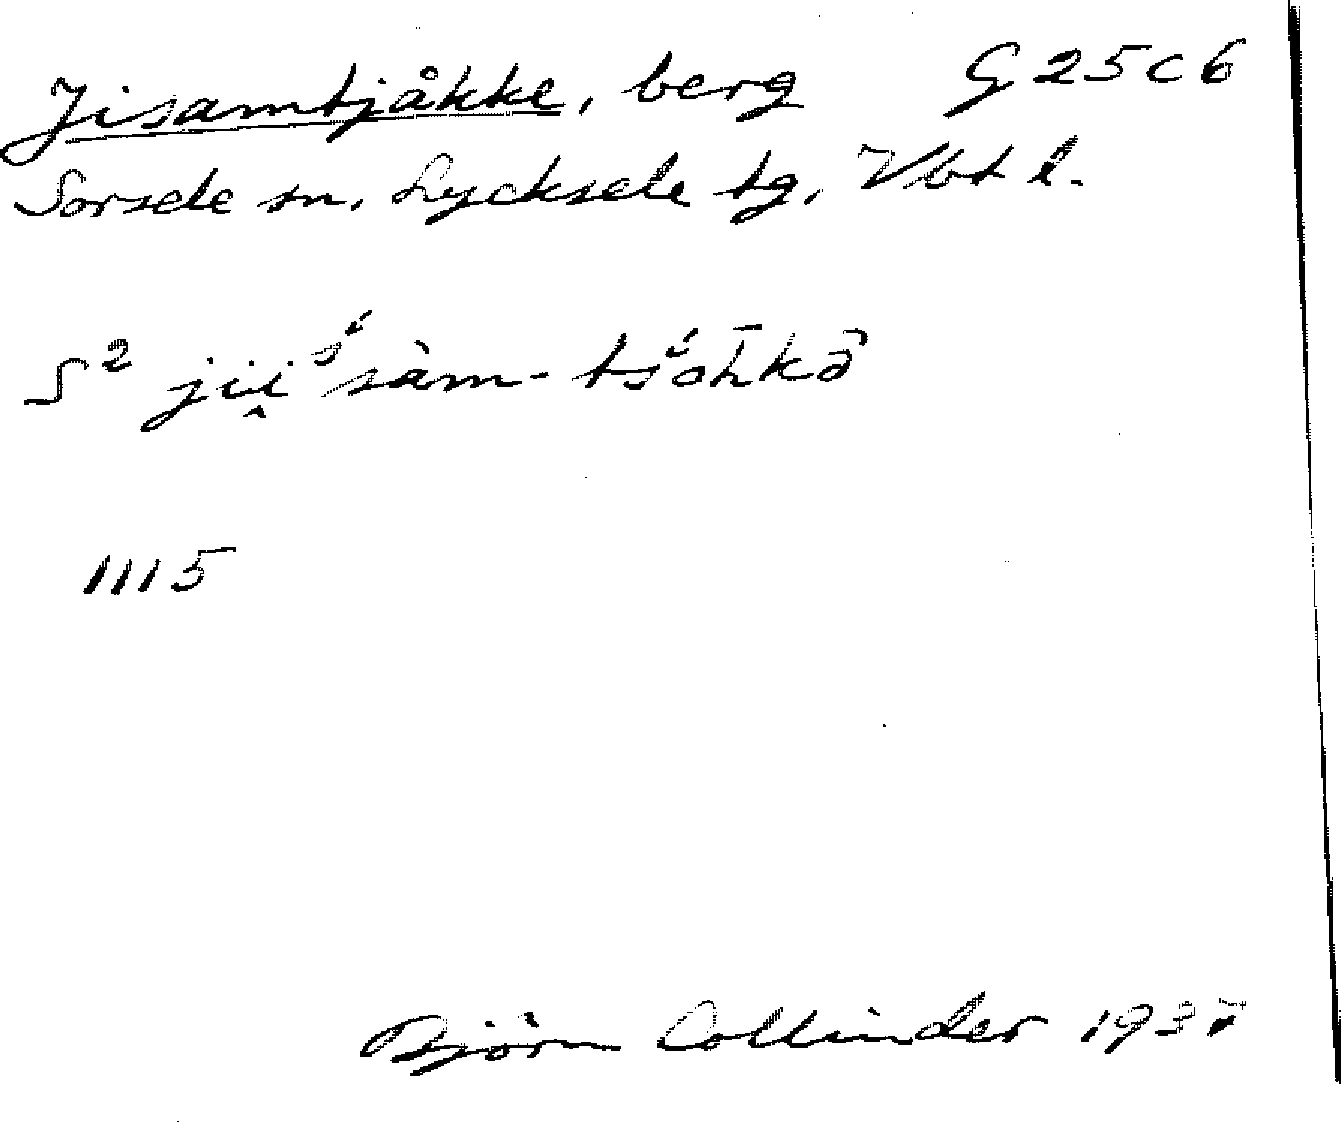 Jisamtjåkke, berg G 25 C 6
Sorsele sn. Lycksele tg. Vbt l.
S² jii̭ˢ́sàm-tśåh̄kə̑
1115
Björn Collinder 1937